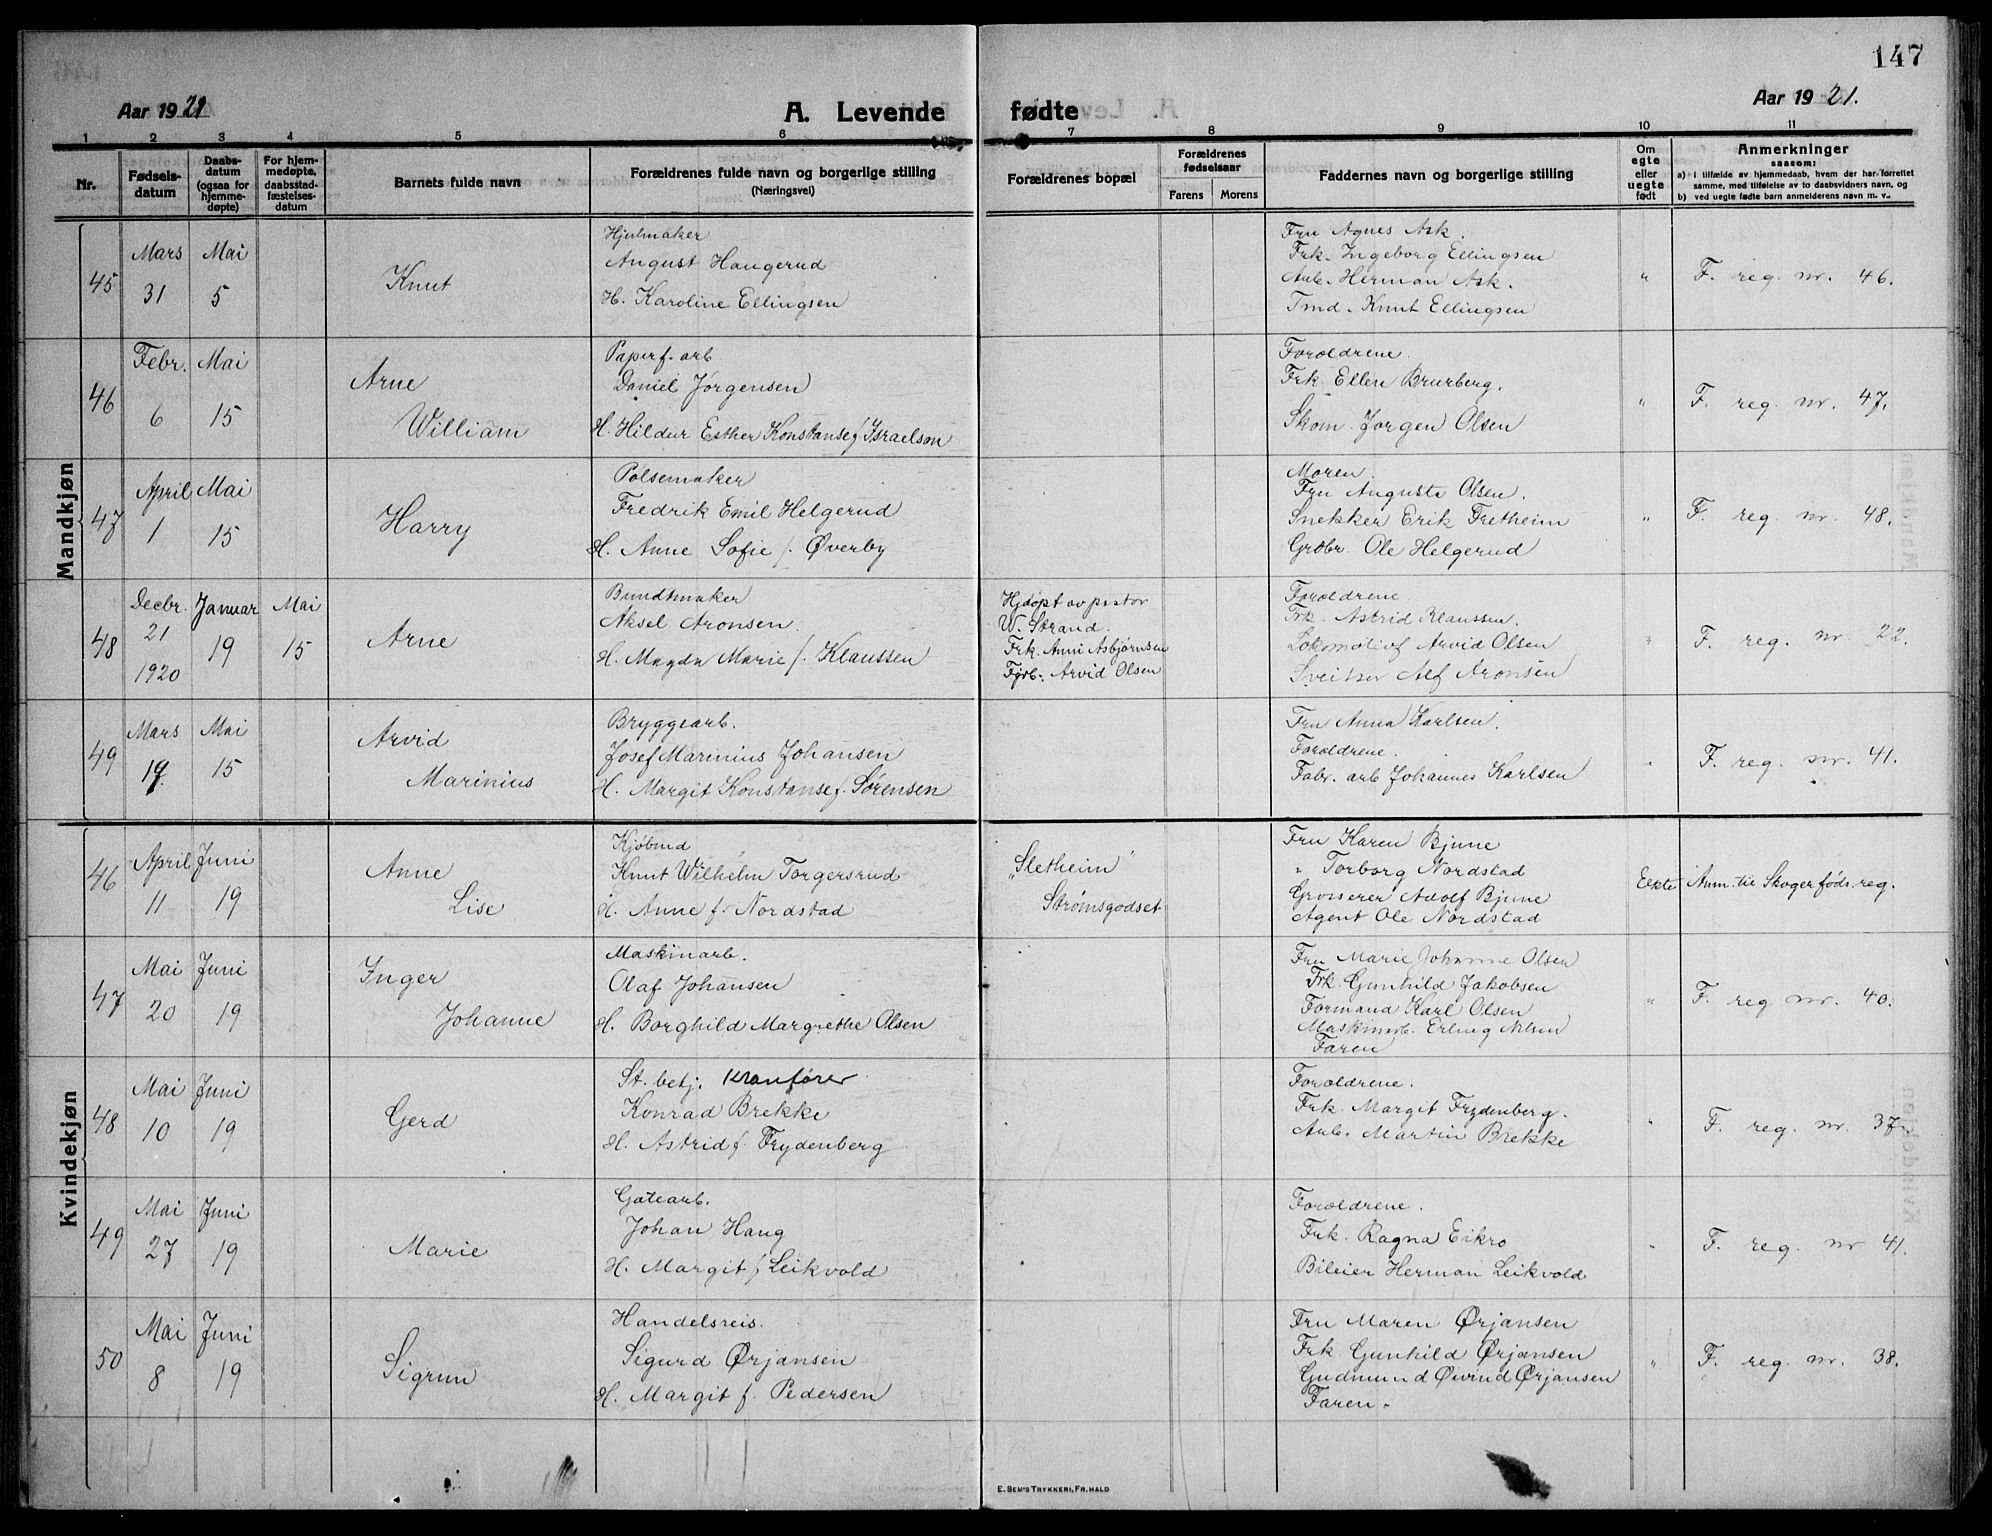 147
Aar 1921
A. Levende
fødte
Aar 1921.
1 2 3 4 5 6 7 8 9 10 11
Nr.
Fødselsdatum
Daabsdatum (ogsaa for hjemmedøpte)
For hjemmedøpte, daabsstadfæstelsesdatum
Barnets fulde navn
Forældrenes fulde navn og borgerlige stilling
(Næringsvei)
Forældrenes bopæl
Forældrenes fødselsaar
Farens
Morens
Faddernes navn og borgerlige stilling
Om egte eller uegte født
Anmerkninger
saasom:
a) i tilfælde av hjemmedaab, hvem der har forrettet
samme, med tilføielse av to daabsvidners navn, og
b) ved uegte fødte barn anmelderens navn m. v.
Mandkjøn
45
Mars 31
Mai 5
Knut
Hjulmaker
August Haugerud
H. Karoline Ellingsen
Fru Agnes Ask.
Frk. Ingeborg Ellingsen
Arb. Herman Ask.
Tmd. Knut Ellingsen
"
F. reg. nr. 46.
46
Febr. 6
Mai 15
Arne
William
Paperf. arb
Daniel Jørgensen
H. Hildur Esther Konstanse f. Israelson
Foreldrene.
Frk. Ellen Brurberg.
Skom. Jørgen Olsen
"
F. reg. nr. 47.
47
April 1
Mai 15
Harry
Pølsemaker
Fredrik Emil Helgerud
H. Anne Sofie f. Øverby
Moren.
Fru Augusta Olsen.
Snekker Erik Fretheim
Grbbr. Ole Helgerud
"
F. reg nr. 48.
48
Decbr. 21 1920
Januar 19
Mai 15
Arne
Bundtmaker
Aksel Aronsen.
H. Magda Marie f. Klaussen
Hjdøpt av pastor
W. Strand.
Frk. Anni Asbjørnsen
Fyrb. Arvid Olsen
Foreldrene.
Frk. Astrid Klaussen.
Lokomotivf Arvid Olsen
Sveitser Alf Aronsen
"
F. reg. nr. 22.
49
Mars 19.
Mai 15
Arvid
Marinius
Bryggearb.
Josef Marinius Johansen
H. Margit Konstanse f. Sørensen
Fru Anna Karlsen.
Foreldrene.
Fabr. arb Johannes Karlsen
"
F. reg. nr. 41.
Kvindekjøn
46
April 11
Juni 19
Anne
Lise
Kjøbmd
Knut Wilhelm Torgersrud
H. Anne f. Nordstad
„Sletheim"
Strømsgodset
Fru Karen Bjune
" Torborg Nordstad
Grosserer Adolf Bjune
Agent Ole Nordstad
Eekte
Anm. til Skoger føds.reg.
47
Mai 20
Juni 19
Inger
Johanne
Maskinarb.
Olaf Johansen
H. Borghild Margrethe Olsen
Fru Marie Johanne Olsen
Frk. Gunhild Jakobsen
Formand Karl Olsen
Maskinarb. Erling Nilsen
Faren
"
F. reg nr. 40.
48
Mai 10
Juni 19
Gerd
St. betj. Kranfører
Konrad Brekke
H. Astrid f. Frydenberg
Foreldrene.
Frk. Margit Frydenberg.
Arb. Martin Brekke
"
F. reg. nr. 37.
49
Mai 27
Juni 19
Marie
Gatearb.
Johan Haug
H. Margit f Leikvold
Foreldrene.
Frk. Ragna Eikro
Bileier Herman Leikvold
"
F. reg. nr 41.
50
Mai 8
Juni 19
Sigrun
Handelsreis.
Sigurd Ørjansen
H. Margit f. Pedersen
Fru Maren Ørjansen
Frk Gunhild Ørjansen
Gudmund Øivind Ørjansen
Faren.
"
F. reg. nr. 38.
E. Sem's Trykkeri, Fr.hald